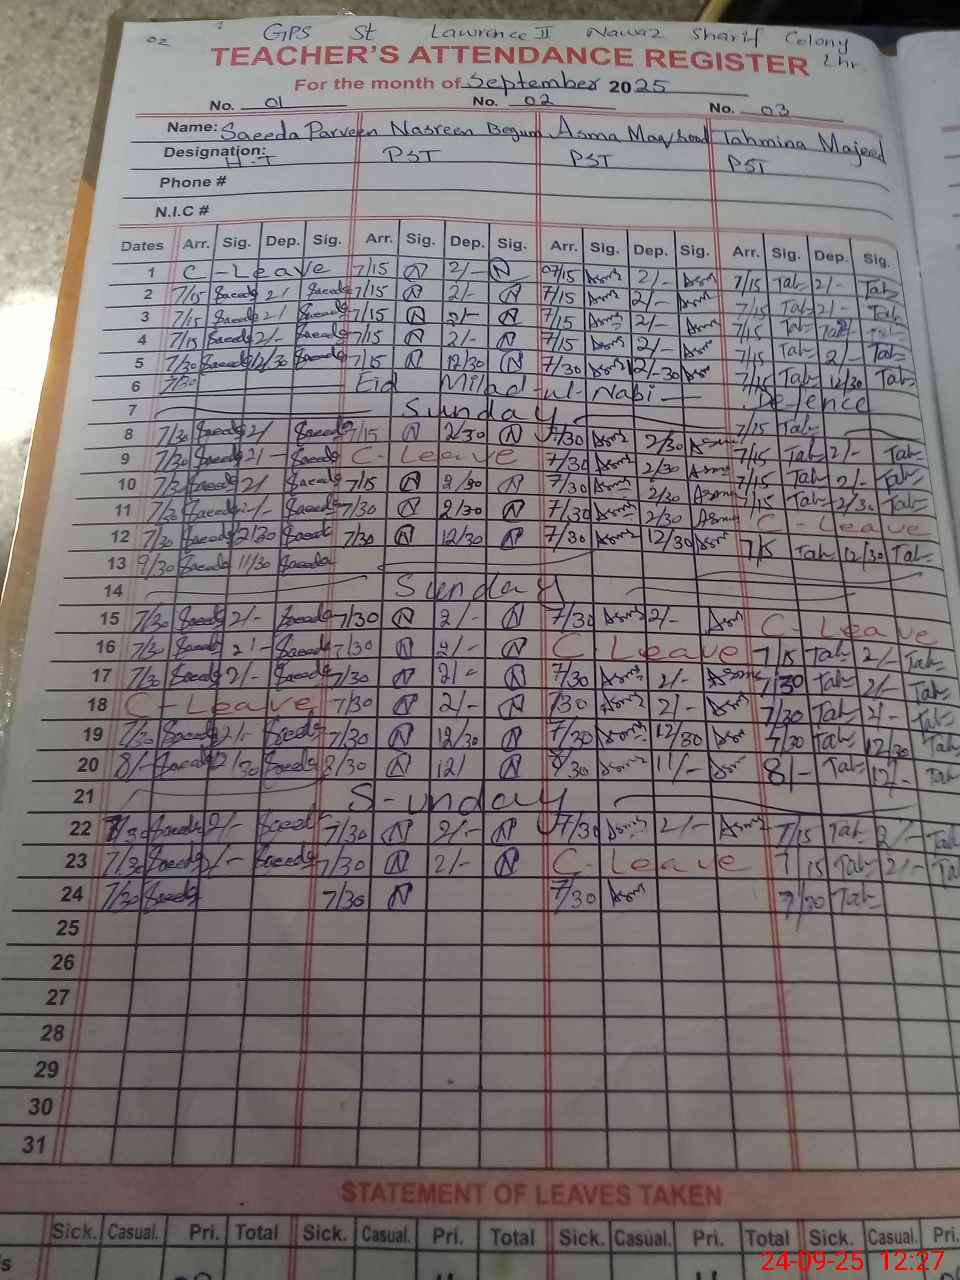 GPS St Lawrence II Nawaz Sharif Colony Lhr.
02
TEACHER'S ATTENDANCE REGISTER
For the month of September 2025
No. 01 No. 02 No. 03
Name: Saeeda Parveen Nasreen Begum Asma Maqsood Tahmina Majeed
Designation: H.T PST PST PST
Phone #
N.I.C #
Dates Arr. Sig. Dep. Sig. Arr. Sig. Dep. Sig. Arr. Sig. Dep. Sig. Arr. Sig. Dep. Sig.
1 C-Leave 7/15 N 2/- N 07/15 Asma 2/- Asm 7/15 Tah 2/- Tah
2 7/15 Saeeda 2/ Saeeda 7/15 N 2/- N 7/15 Asma 2/- Asm 7/15 Tah 2/- Tah
3 7/15 Saeeda 2/ Saeeda 7/15 N 2/- N 7/15 Asma 2/- Asm 7/15 Tah Tah
4 7/15 Saeeda 2/- Saeeda 7/15 N 2/- N 7/15 Asma 2/- Asm 7/15 Tah 2/- Tah
5 7/30 Saeeda 12/30 Saeeda 7/15 N 12/30 N 7/30 Asma 12/-30 Asm 7/15 Tah 12/30 Tah
6 7/30 Eid Milad-ul-Nabi Defence
7 Sunday 7/15 Tah
8 7/30 Saeeda 2/ Saeeda 7/15 N 2/30 N 7/30 Asma 2/30 Asma 7/15 Tah 2/- Tah
9 7/30 Saeeda 2/- Saeeda C-Leave 7/30 Asma 2/30 Asma 7/15 Tah 2/- Tah
10 7/30 Saeeda 2/ Saeeda 7/15 N 2/30 N 7/30 Asma 2/30 Asma 7/15 Tah 2/30 Tah
11 7/30 Saeeda 2/- Saeeda 7/30 N 2/30 N 7/30 Asma 2/30 Asma C-Leave
12 7/30 Saeeda 12/30 Saeed 7/30 N 12/30 N 7/30 Asma 12/30 Asm 7/15 Tah 12/30 Tah
13 9/30 Saeeda 11/30 Saeeda
14 Sunday
15 7/30 Saeeda 2/- Saeeda 7/30 N 2/- N 7/30 Asma 2/- Asm C-Leave
16 7/30 Saeeda 2/- Saeeda 7/30 N 2/- N C-Leave 7/15 Tah 2/- Tah
17 7/30 Saeeda 2/- Saeeda 7/30 N 2/- N 7/30 Asma 2/- Asma 7/30 Tah 2/- Tah
18 C-Leave 7/30 N 2/- N 7/30 Asma 2/- Asm 7/30 Tah 2/- Tah
19 7/30 Saeeda 2/- Saeeda 7/30 N 12/30 N 7/30 Asma 12/30 Asm 7/30 Tah 12/30 Tah
20 8/- Saeeda 12/30 Saeeda 8/30 N 12/ N 8/30 Asma 11/- Asm 8/- Tah 12/- Tah
21 Sunday
22 7/30 Saeeda 2/- Saeeda 7/30 N 2/- N 7/30 Asma 2/- Asma 7/15 Tah 2/- Tah
23 7/30 Saeeda 2/- Saeeda 7/30 N 2/- N C-Leave 7/15 Tah 2/- Ta
24 7/30 Saeeda 7/30 N 7/30 Asm 7/30 Tah
25
26
27
28
29
30
31
STATEMENT OF LEAVES TAKEN
Sick. Casual. Pri. Total Sick. Casual. Pri. Total Sick. Casual. Pri. Total Sick. Casual. Pri.
24-09-25 12:27